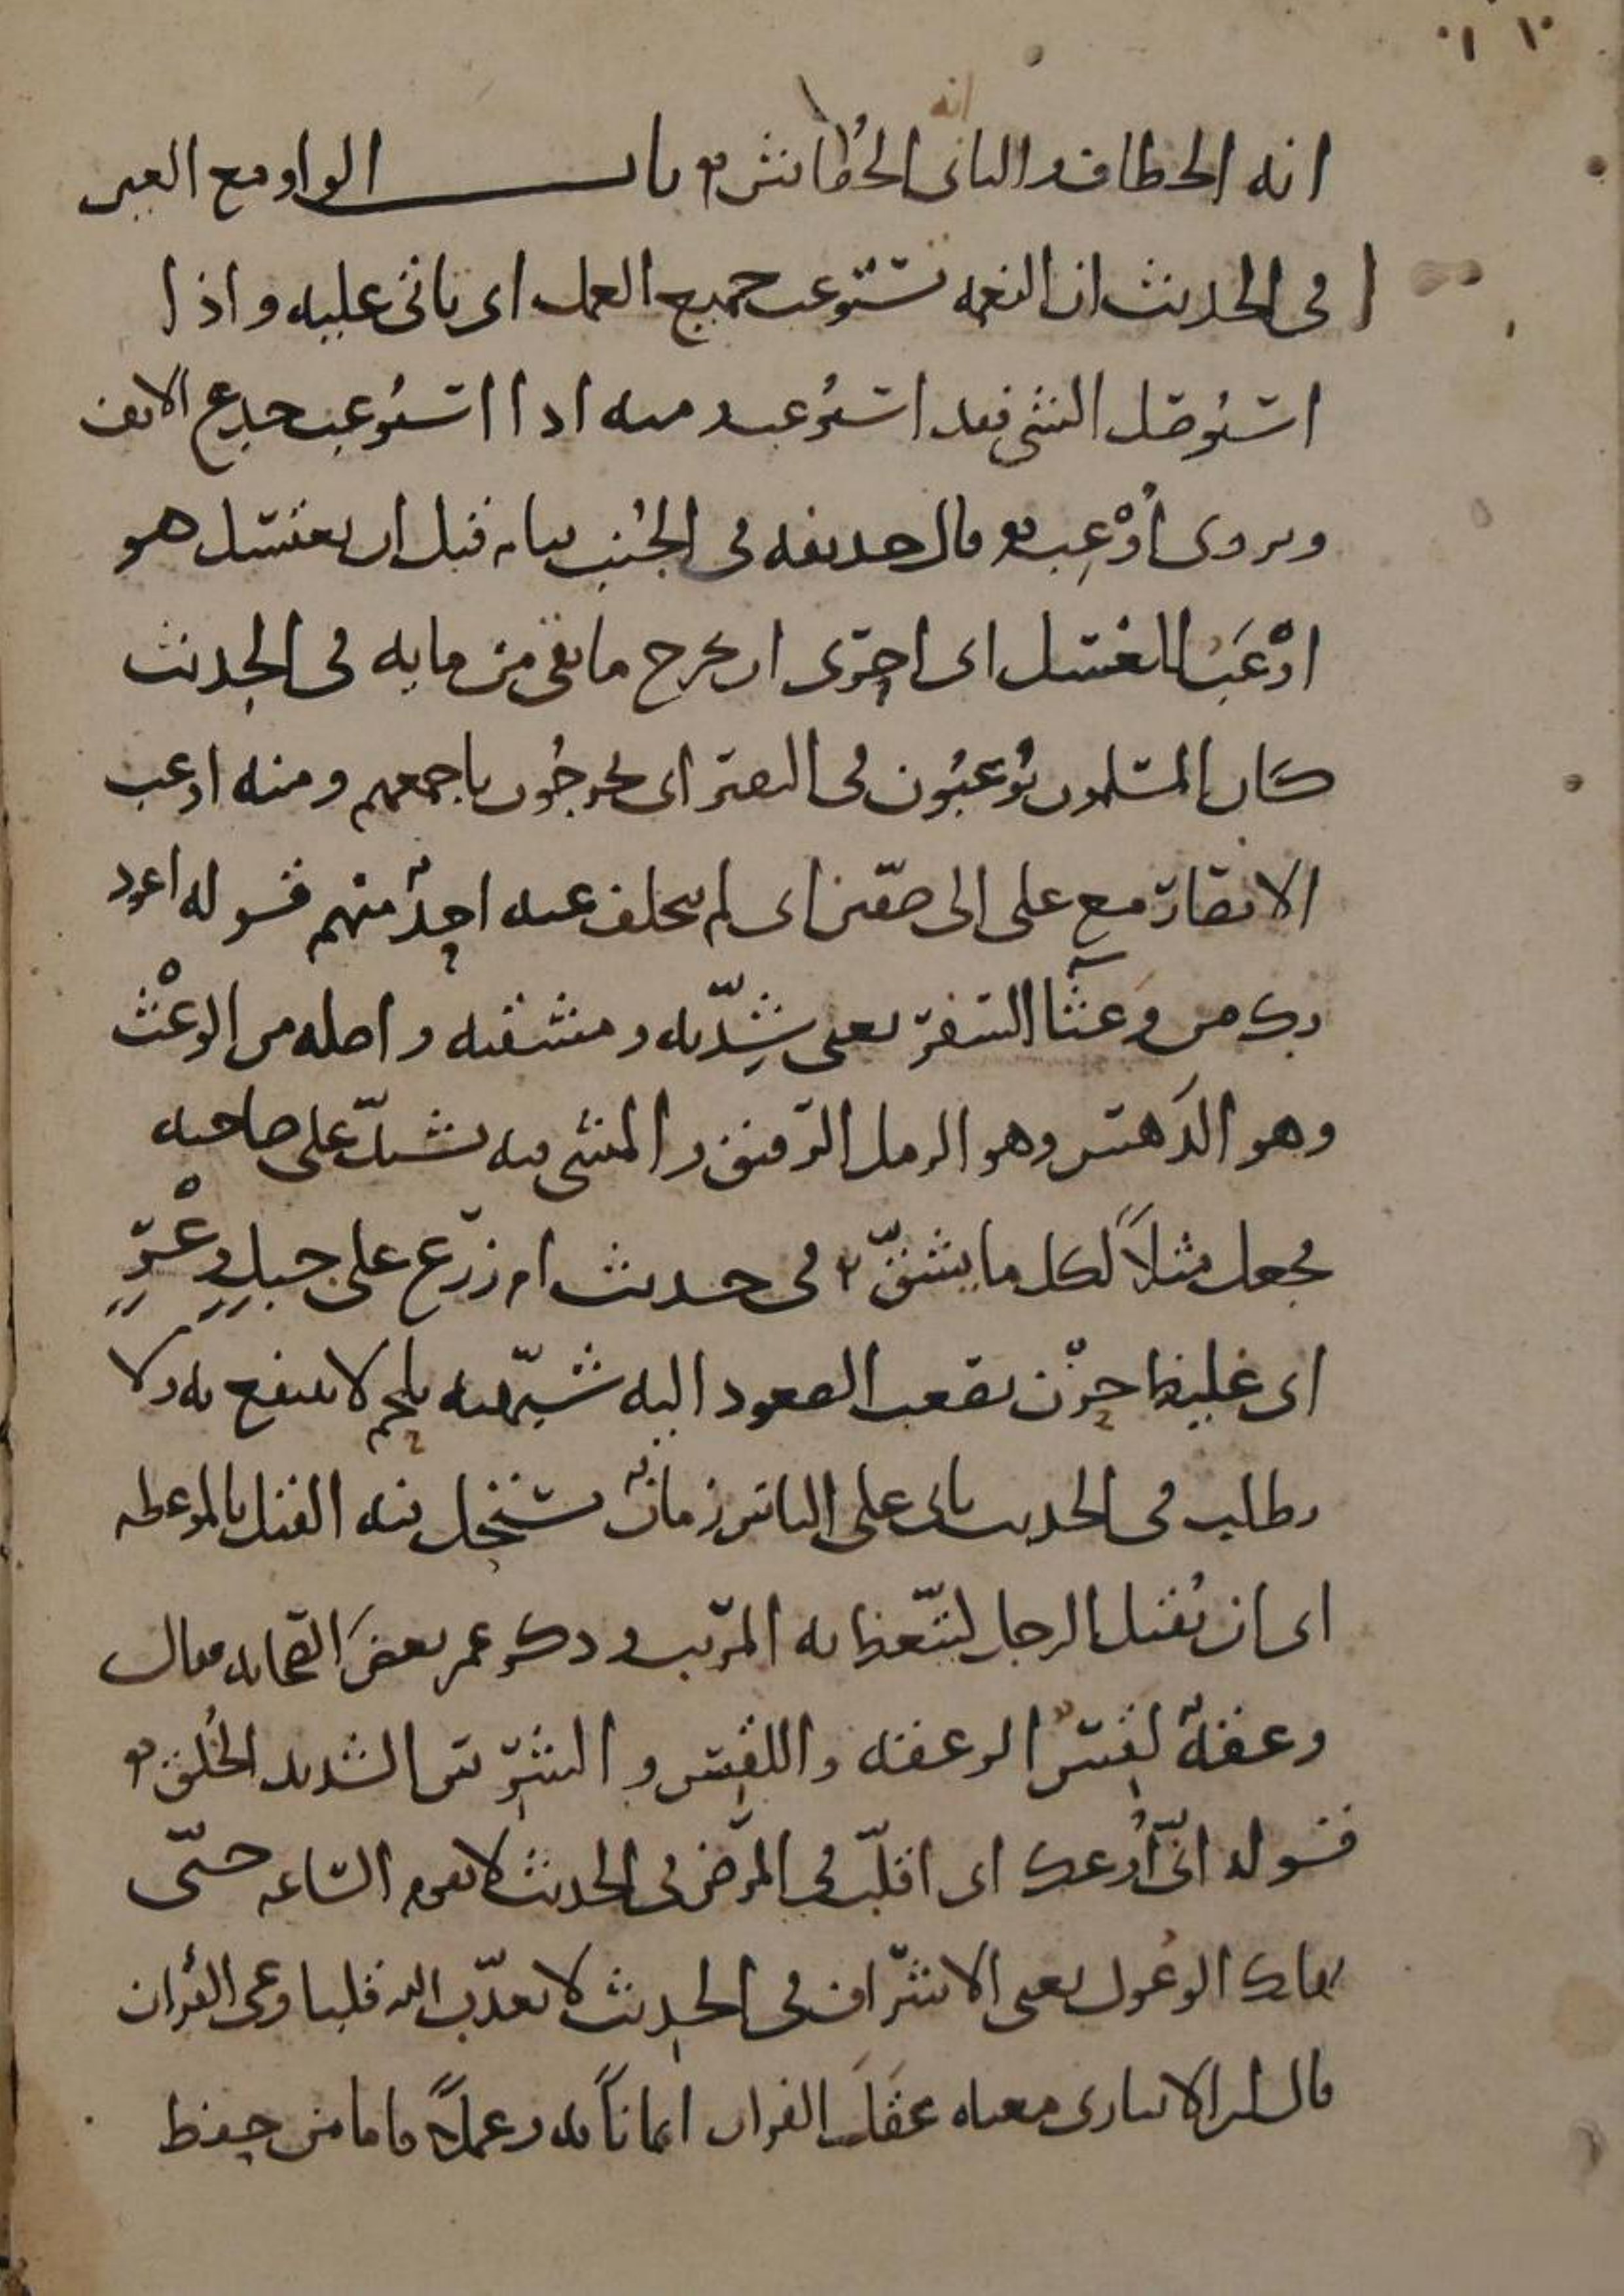 انه الخطاف والثانى الخُفاش باب الواو مع العين
فى الحديث ان النعمه تستوعب جميع العمل اى ياتى عليه واذا
استؤصل الشى فقد استوعب ومنه اذا استوعب جدع الانف
ويروى أُوْعِب وقال حذيفه فى الجُنب ينام قبل ان يغتسل هو
اوْعَبُ للغسل اى احرى ان يخرج ما بقى من مايه فى الحديث
كان المسلمون يُوعبُون فى النفير اى يخرجُون باجمعهم ومنه اوعب
الانصار مع على الى صفين اى لم يتخلف عنه احدٌ منهم قوله اعوذ
بك من وَعثآا السفر يعنى شِدّته ومشقته واصله من الوعْث
وهو الدَهس وهو الرمل الرقيق والمشى فيه يشتدّ على صاحبه
فجعل مثلاً لكل ما يشقّ فى حديث ام زرع على جبلٍ وعْرٍ
اى غليظ حزْن يصعب الصعود اليه شبّهته بلحم لا ينتفع به ولا
يطلب فى الحديث ياتى على الناس زمانٌ يستحل فيه القتل بالموعظه
اى ان يُقتل الرجل ليتّعظ به المريب وذكر عمر بعضَ الصحابه فقال
وعقةٌ لقِسٌ الوعقه واللقِس والشرِس الشديد الخُلق
قوله انّى أُوعك اى اقلّب فى المرض فى الحديث لا تقوم الساعه حتّى
يهلك الوعُول يعنى الاشراف فى الحديث لا يعذّب الله قلبا وعى القرآن
قال ابن الانبارى معناه عقَلَ القران ايماناً به وعملاً فاما من حفظ